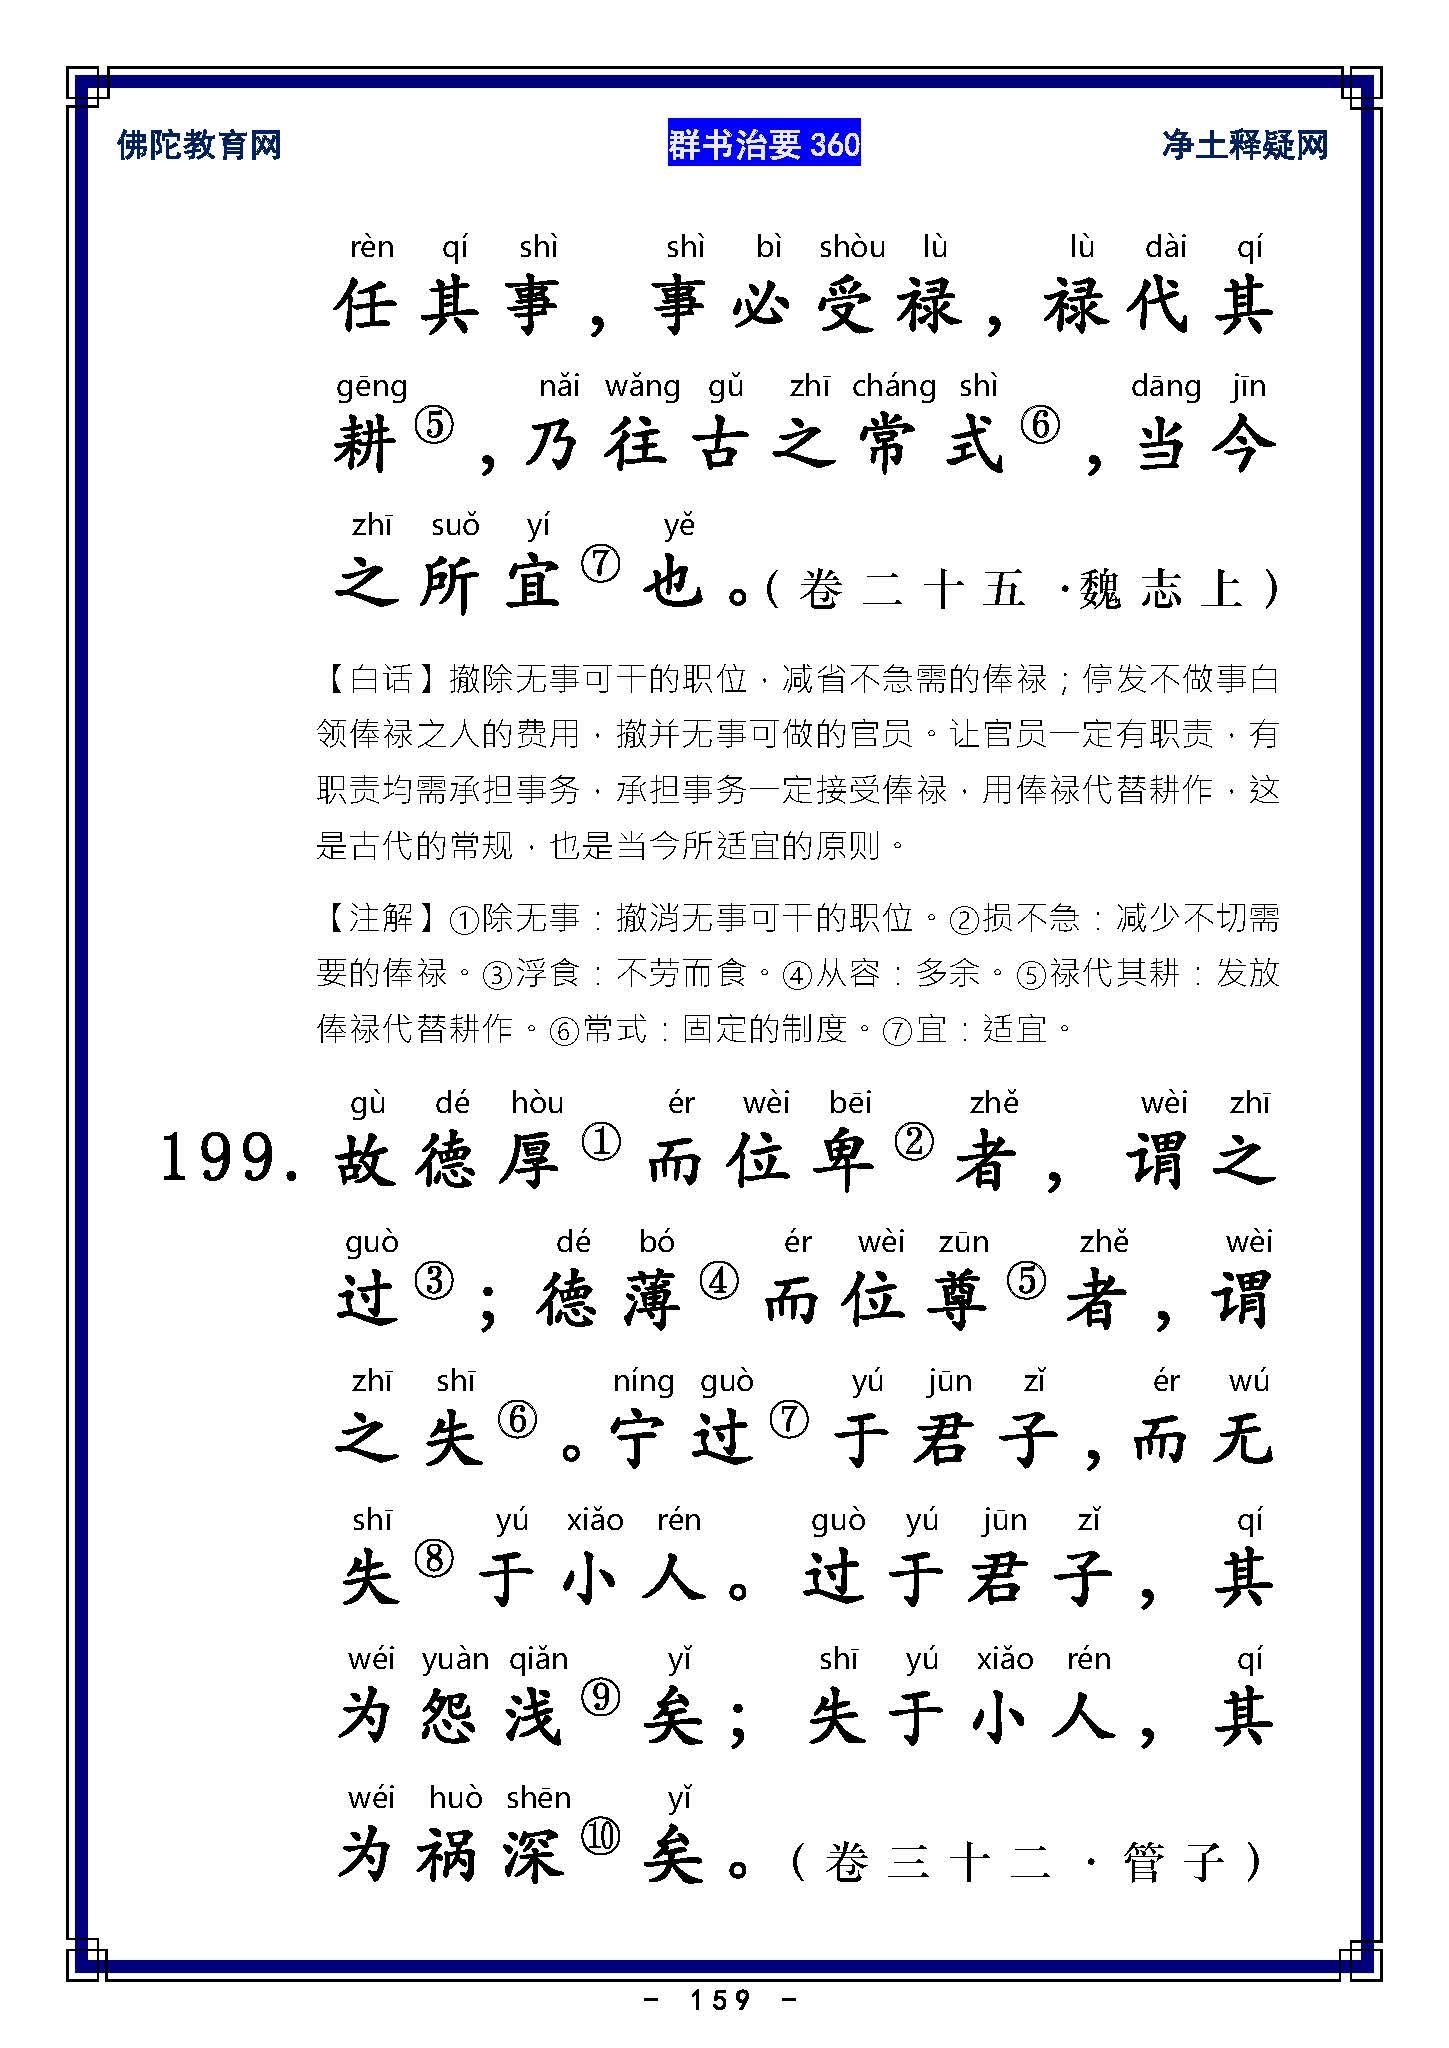 佛陀教育网 群书治要 360 净土释疑网
rèn qí shì shì bì shòu lù lù dài qí
任其事，事必受禄，禄代其
gēng nǎi wǎng gǔ zhī cháng shì dāng jīn
耕⑤，乃往古之常式⑥，当今
zhī suǒ yí yě
之所宜⑦也。（卷二十五·魏志上）
【白话】撤除无事可干的职位，减省不急需的俸禄；停发不做事白
领俸禄之人的费用，撤并无事可做的官员。让官员一定有职责，有
职责均需承担事务，承担事务一定接受俸禄，用俸禄代替耕作，这
是古代的常规，也是当今所适宜的原则。
【注解】①除无事：撤消无事可干的职位。②损不急：减少不切需
要的俸禄。③浮食：不劳而食。④从容：多余。⑤禄代其耕：发放
俸禄代替耕作。⑥常式：固定的制度。⑦宜：适宜。
gù dé hòu ér wèi bēi zhě wèi zhī
199. 故德厚①而位卑②者，谓之
guò dé bó ér wèi zūn zhě wèi
过③；德薄④而位尊⑤者，谓
zhī shī níng guò yú jūn zǐ ér wú
之失⑥。宁过⑦于君子，而无
shī yú xiǎo rén guò yú jūn zǐ qí
失⑧于小人。过于君子，其
wéi yuàn qiǎn yǐ shī yú xiǎo rén qí
为怨浅⑨矣；失于小人，其
wéi huò shēn yǐ
为祸深⑩矣。（卷三十二·管子）
- 159 -